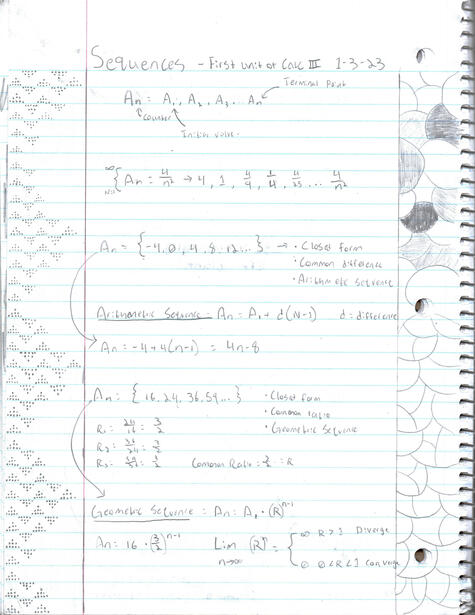 Sequences - First unit of Calc III 1-3-23
Terminal Point
An = A1, A2, A3 ... An
Counter
Initial value
∞ { An = 4/n² → 4, 1, 4/9, 1/4, 4/25 ... 4/n²
N=1
An = {-4, 0, 4, 8, 12...} → • Closet form
• Common difference
• Arithmetic sequence
Arithmetic Sequence - An = A1 + d(N-1) d = difference
An = -4+4(n-1) = 4n-8
An = {16, 24, 36, 54...} • Closet form
• Common ratio
R1 = 24/16 = 3/2 • Geometric Sequence
R2 = 36/24 = 3/2
R3 = 54/36 = 3/2 Common Ratio = 3/2 = R
Geometric Sequence = An = A1 · (R)^n-1
An = 16 · (3/2)^n-1 Lim (R)^n = { ∞ R > 1 Diverge
n→∞ 0 0<R<1 converge